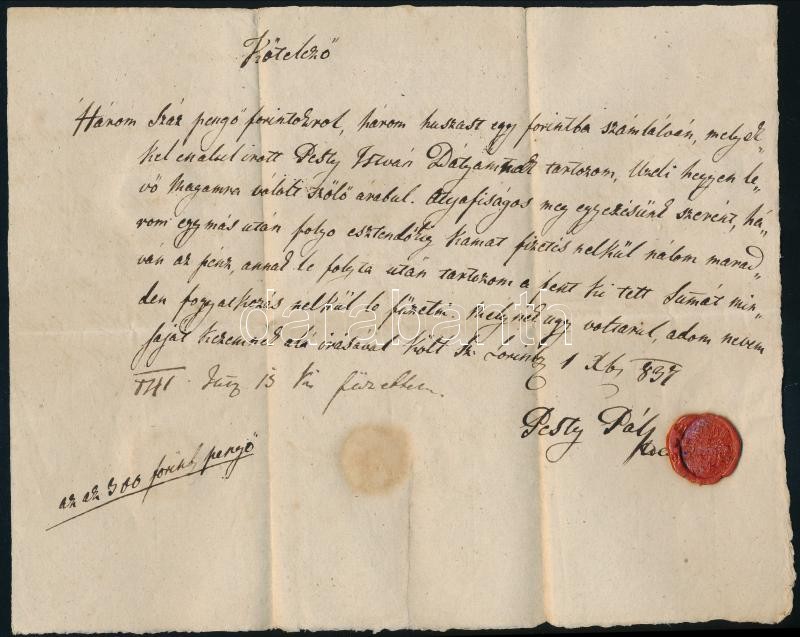 Kötelező
Három száz pengő forintokrol, három huszast egy forintba számlálván, melyek-
kel enalul irott Pesty István Bátyámnak tartozom, hegyen le-
vő magamra válolt szőlő arabul. Atyafiságos meg egyezésünk szerént, há-
rom egymás után folyo esztendőkig kamat fizetés nélkül nálom marad-
ván az pénz, annak le folyta után tartozom a fent ki tett Sumát min-
den fogyatkozas nelkül le fizetni melynek ugy voltárul, adom nevem
saját kezemnek alá irásával költ Sz. Lőrintz 1 Xbr 837
841 13 ki fizettem.
Pesty Pál
az az 300 forint pengő
darabanth